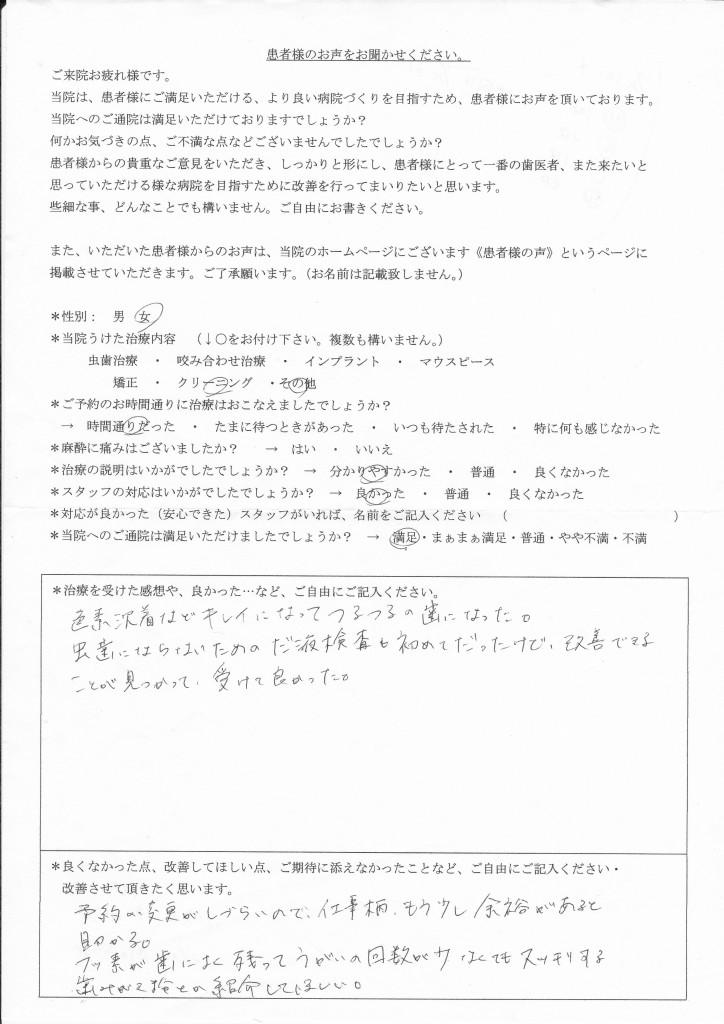 患者様のお声をお聞かせください。
ご来院お疲れ様です。
当院は、患者様にご満足いただける、より良い病院づくりを目指すため、患者様にお声を頂いております。
当院へのご通院は満足いただけておりますでしょうか？
何かお気づきの点、ご不満な点などございませんでしたでしょうか？
患者様からの貴重なご意見をいただき、しっかりと形にし、患者様にとって一番の歯医者、また来たいと
思っていただける様な病院を目指すために改善を行ってまいりたいと思います。
些細な事、どんなことでも構いません。ご自由にお書きください。
また、いただいた患者様からのお声は、当院のホームページにございます《患者様の声》というページに
掲載させていただきます。ご了承願います。（お名前は記載致しません。）
＊性別： 男 女
＊当院うけた治療内容 （↓○をお付け下さい。複数も構いません。）
虫歯治療 ・ 咬み合わせ治療 ・ インプラント ・ マウスピース
矯正 ・ クリーニング ・その他
＊ご予約のお時間通りに治療はおこなえましたでしょうか？
→ 時間通りだった ・ たまに待つときがあった ・ いつも待たされた ・ 特に何も感じなかった
＊麻酔に痛みはございましたか？ → はい ・ いいえ
＊治療の説明はいかがでしたでしょうか？ → 分かりやすかった ・ 普通 ・ 良くなかった
＊スタッフの対応はいかがでしたでしょうか？ → 良かった ・ 普通 ・ 良くなかった
＊対応が良かった（安心できた）スタッフがいれば、名前をご記入ください （ ）
＊当院へのご通院は満足いただけましたでしょうか？ → 満足・まぁまぁ満足・普通・やや不満・不満
＊治療を受けた感想や、良かった…など、ご自由にご記入ください。
色素沈着などキレイになってつるつるの歯になった。
虫歯にならないためのだ液検査も初めてだったけど、改善できる
ことが見つかって、受けて良かった。
＊良くなかった点、改善してほしい点、ご期待に添えなかったことなど、ご自由にご記入ください・
改善させて頂きたく思います。
予約の変更がしづらいので、仕事柄、もう少し余裕があると
助かる。
フッ素が歯に残ってうがいの回数が少なくてもスッキリする
歯みがき粉とか紹介してほしい。